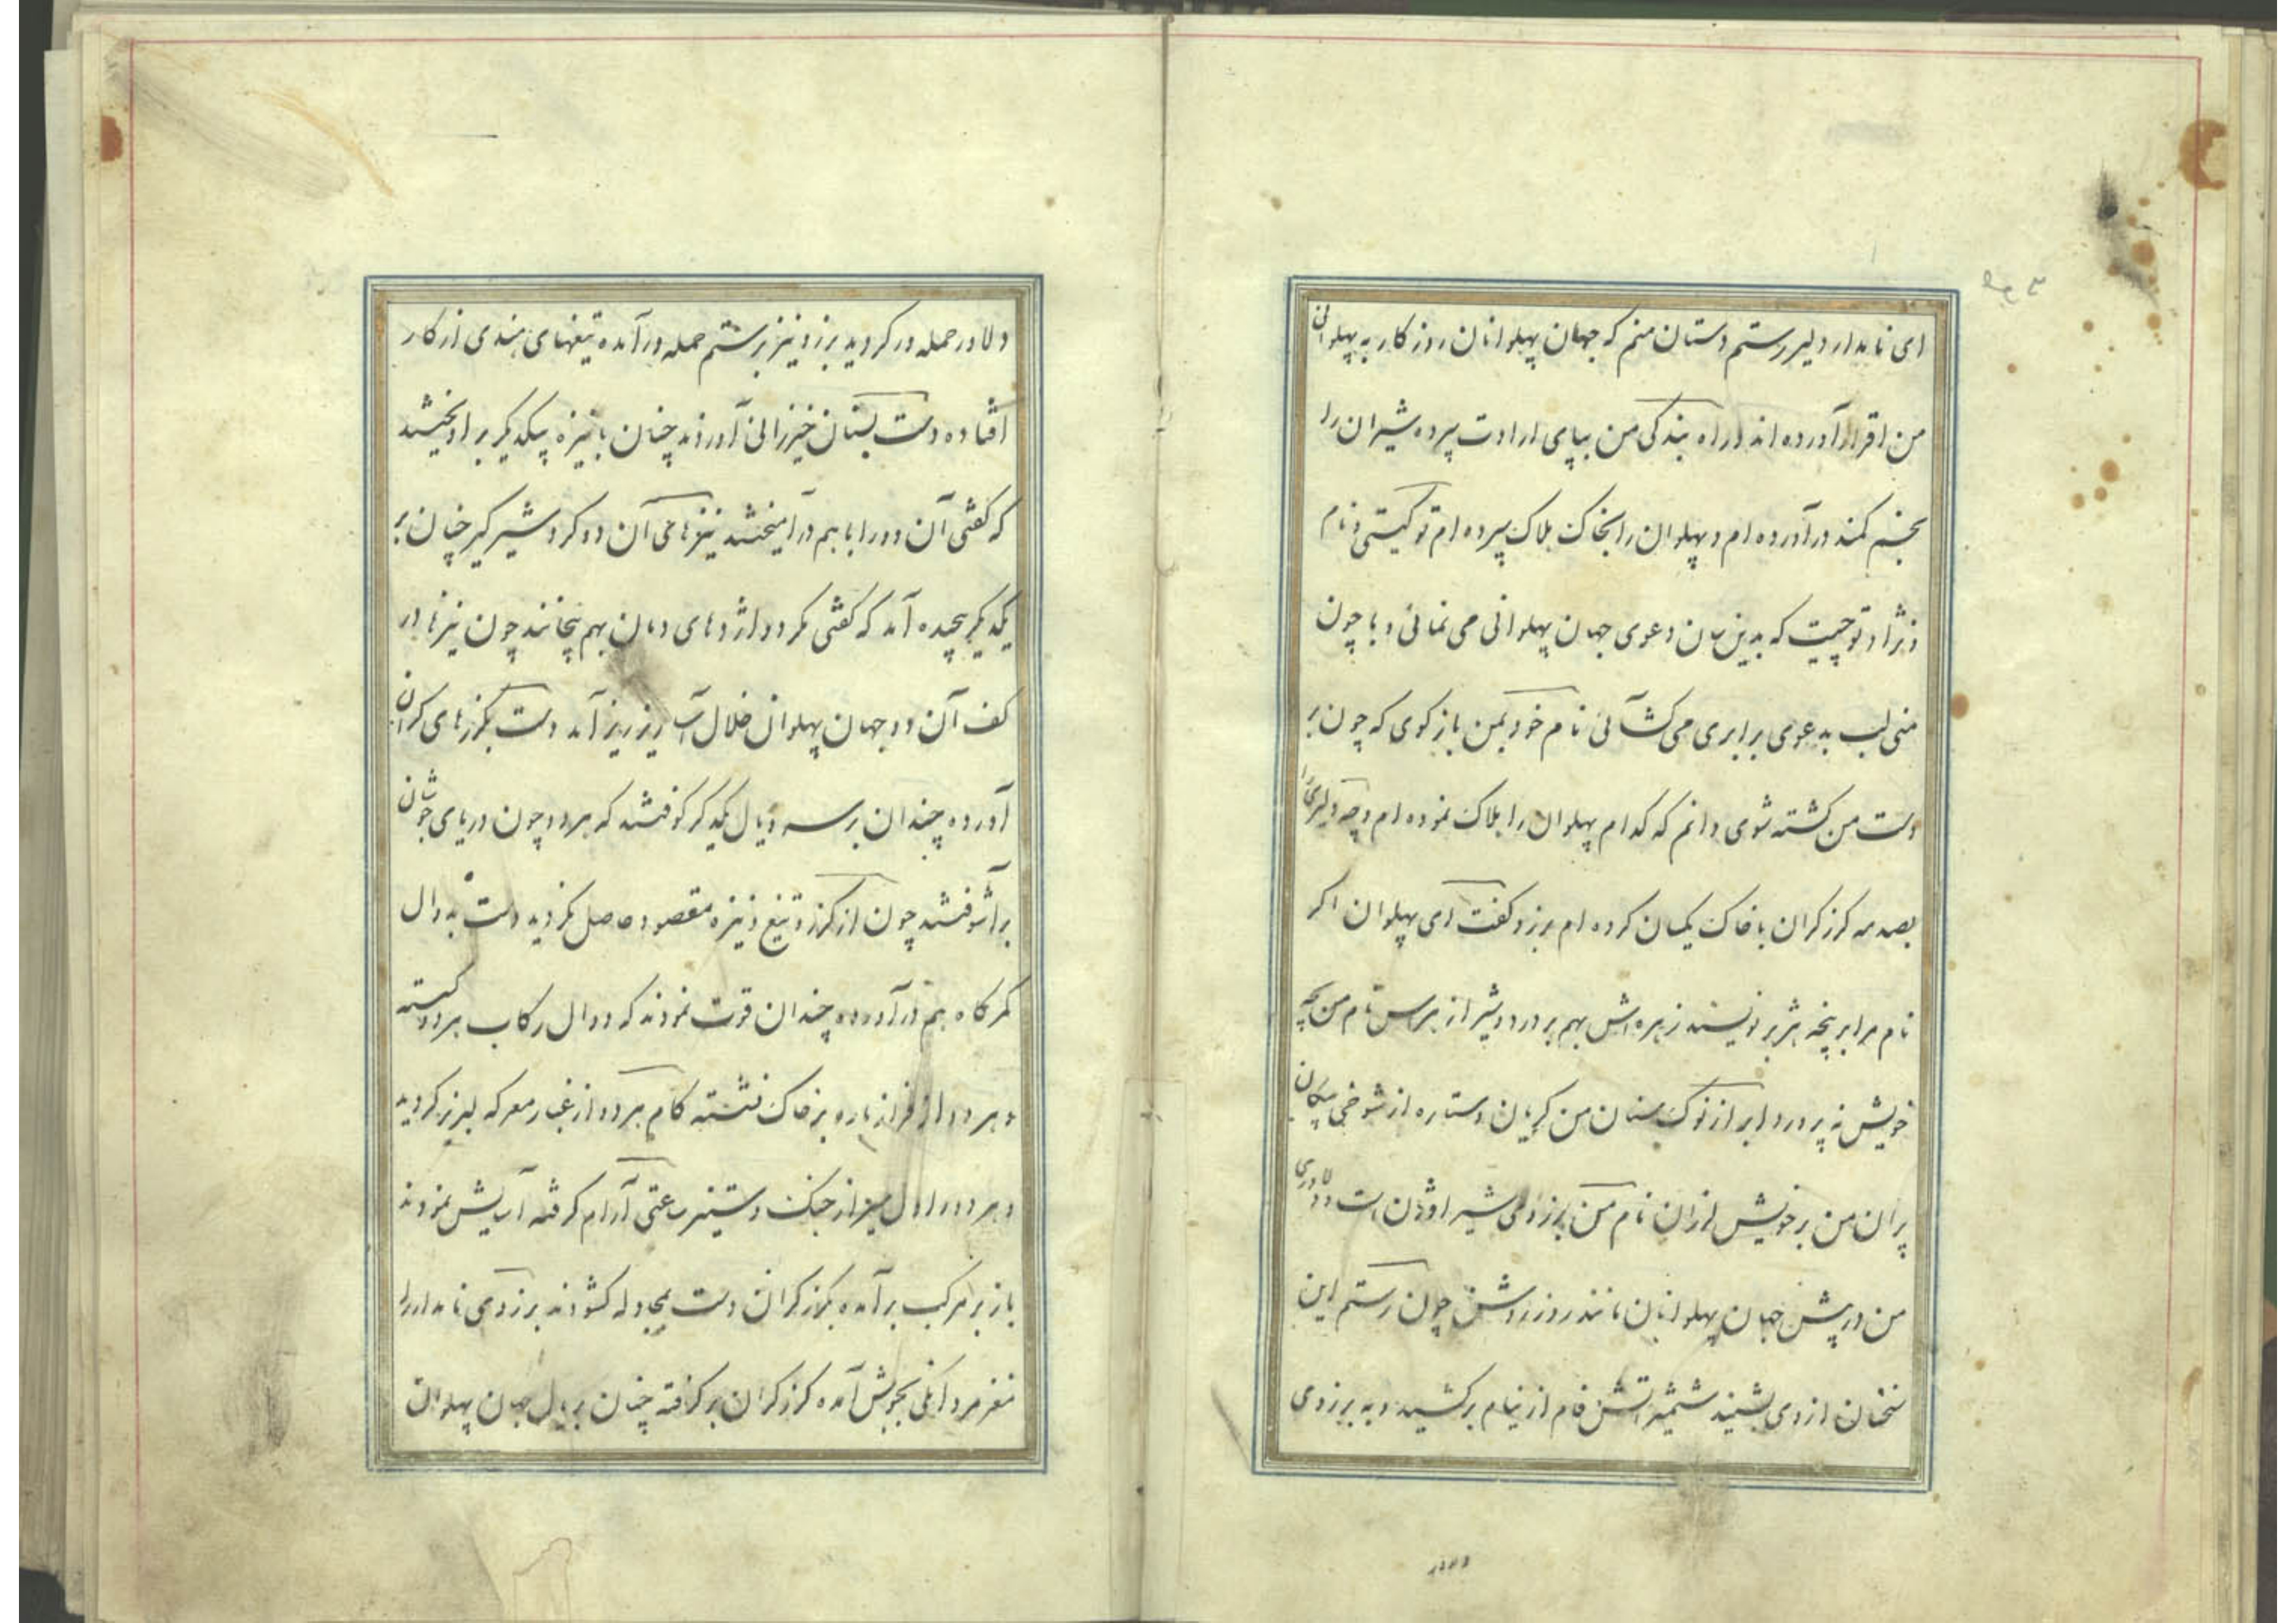 ای نامدار دلیر رستم دستان منم که جهان پهلوانان روزکار به پهلوانی
من اقرار آورده اند در راه بندکی من بپای ارادت سپرده شیران را
بخم کمند در آورده ام و پهلوان را بخاک هلاک سپرده ام تو کیستی و نام
و نژاد تو چیست که بدین سان دعوی جهان پهلوانی می نمائی و با چون
منی لب بدعوی برابری می کشائی نام خود بمن باز کوی که چون بر
دست من کشته شوی دانم که کدام پهلوان را هلاک نموده ام و چه دلیری را
بصدمه کرز کران با خاک یکسان کرده ام برزو کفت ای پهلوان اکر
نام مرا بر پنجه هژبر نویسند زهره اش بهم بر درد و شیر از هراس نام من بچه
خویش نپرورد ابر از نوک سنان من کریان و ستاره از شوخی پیکان
پران من بر خویش لرزان نام من برزوی شیر اوژن است و دلاوری
من در پیش جهان پهلوانان مانند روز روشن چون رستم این
سخنان از وی بشنید شمشیر آتش فام از نیام بر کشید و به برزوی
دلاور
دلاور حمله ور کردید برزو نیز برستم حمله در آمده تیغهای هندی از کار
افتاده دست بسنان خیزرانی آوردند چنان با نیزه بیکدیکر بر آویختند
که کفتی آن دو را با هم در آمیختند نیزهای آن دو کرد شیر کیر چنان بر
یکدیکر پیچیده آمد که کفتی مکر دو اژدهای دمان بهم پیچانند چون نیزها در
کف آن دو جهان پهلوان خلال آسا ریز ریز آمد دست بکرزهای کران
آورده چندان بر سر و یال یکدکر کوفتند که هر دو چون دریای جوشان
بر آشوفتند چون از کرز و تیغ و نیزه مقصود حاصل نکردید دست به دوال
کمرکاه هم در آورده چندان قوت نمودند که دوال رکاب هر دو کسسته
و هر دو از فراز باره بر خاک نشسته کام هر دو از غبار معرکه لبریز کردید
و هر دو را دل سیر از جنک و ستیز ساعتی آرام کرفته آسایش نمودند
باز بر مرکب بر آمده بکرز کران دست بمجادله کشودند برزوی نامدار را
مغز مرد افکنی بجوش آمده کرز کران بر کرفته چنان بر یال جهان پهلوان